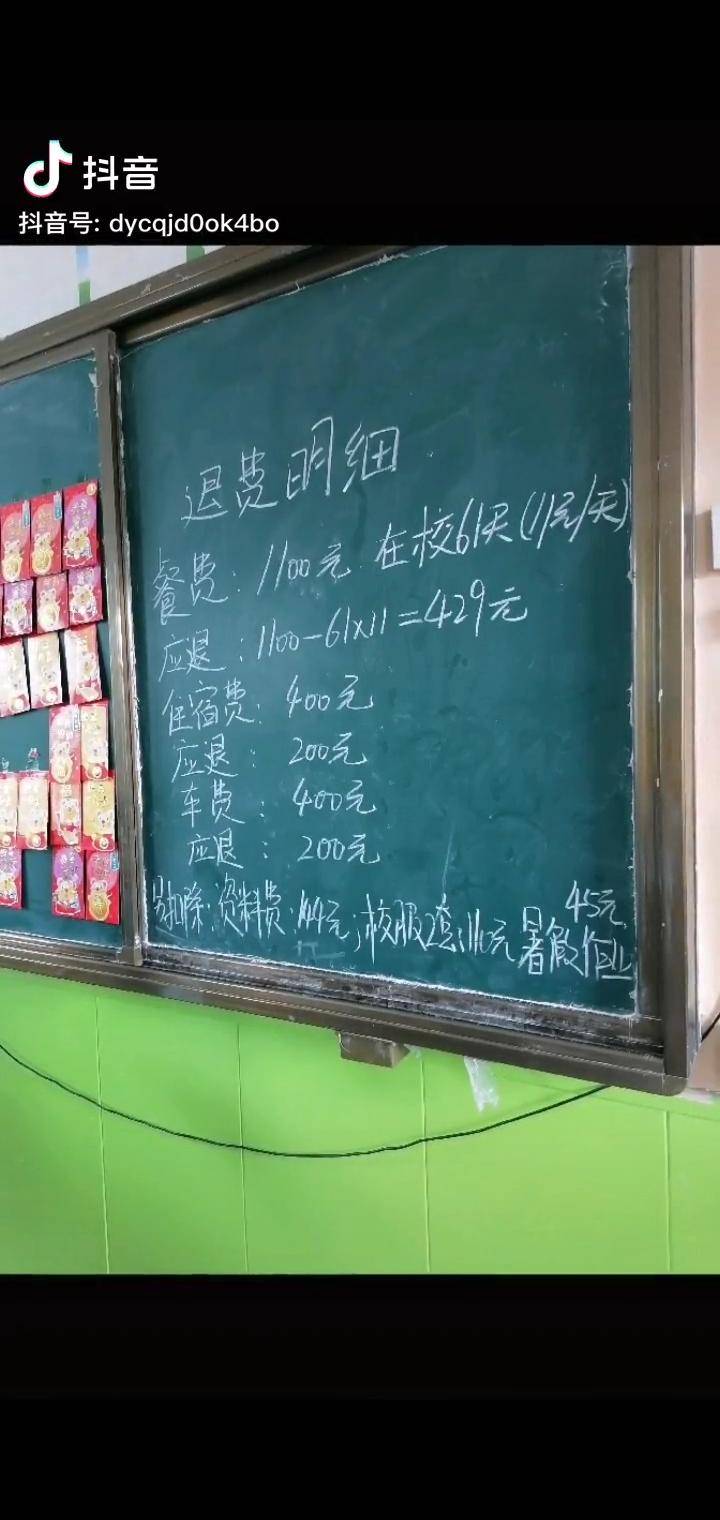 抖音
抖音号: dycqjd0ok4bo
退费明细
餐费: 1100元 在校61天(11元/天)
应退: 1100-61x11=429元
住宿费: 400元
应退: 200元
车费: 400元
应退: 200元
另扣除: 资料费: 144元; 校服2套: 110元 暑假作业 45元